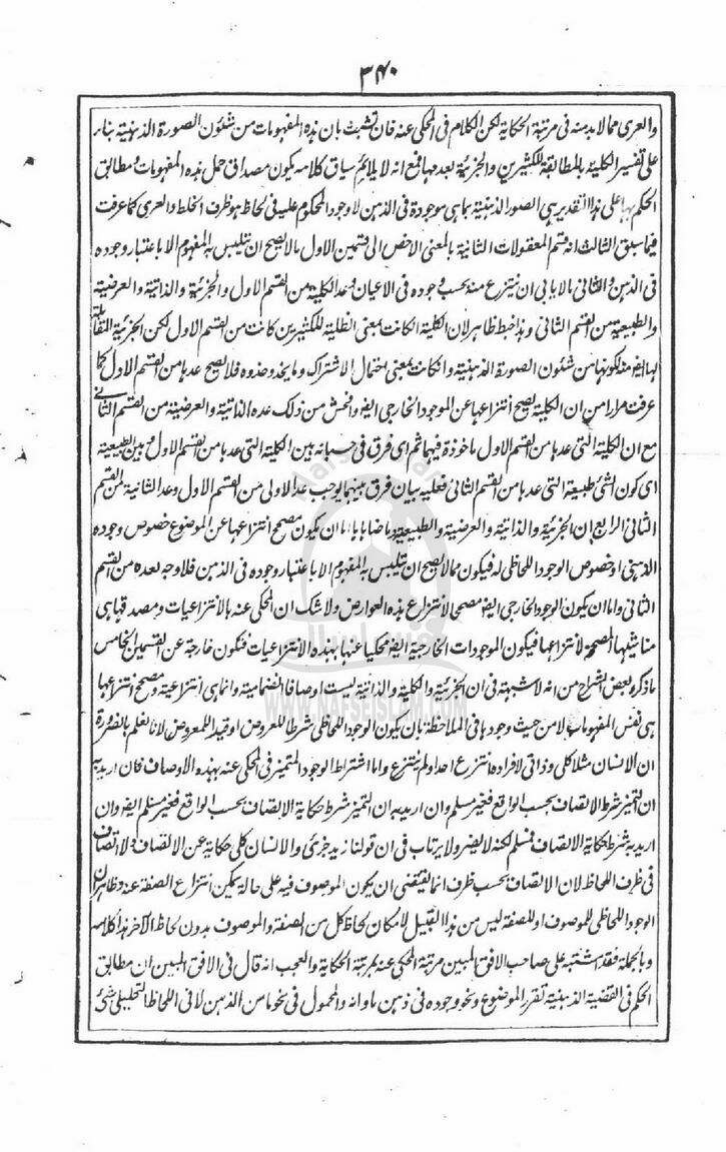 ٣٤٠
والعرى مما لا بد منه فى مرتبة الحكاية لكن الكلام فى المحكى عنه فان تشبث بان هذه المفهومات من شئون الصورة الذهنية بناء
على تفسير الكلية بالمطابقة للكثيرين والجزئية بعدمها فمع انه لا يلائم سياق كلامه يكون مصداق حمل هذه المفهومات ومطابق
الحكم بها على هذا التقدير هى الصور الذهنية بما هى موجودة فى الذهن لا وجود المحكوم عليه فى لحاظ هو ظرف الخلط والعرى كما عرفت
فيما سبق الثالث انه قسم المعقولات الثانية بالمعنى الاخص الى قسمين الاول ما لا يصح ان يتلبس به المفهوم الا باعتبار وجوده
فى الذهن والثانى ما لا يابى ان ينتزع منه بحسب وجوده فى الاعيان وعد الكلية من القسم الاول والجزئية والذاتية والعرضية
والطبيعية من القسم الثانى وهذا خبط ظاهر لان الكلية ان كانت بمعنى الظلية للكثيرين كانت من القسم الاول لكن الجزئية المقابلة
لها ايضا منه لكونها من شئون الصورة الذهنية وان كانت بمعنى احتمال الاشتراك وما يحذو حذوه فلا يصح عدها من القسم الاول كما
عرفت مرارا من ان الكلية يصح انتزاعها عن الموجود الخارجى ايضا وافحش من ذلك عده الذاتية والعرضية من القسم الثانى
مع ان الكلية التى عدها من القسم الاول ماخوذة فيهما ثم اى فرق فى حسبانه بين الكلية التى عدها من القسم الاول وبين الطبيعية
اى كون الشئ طبيعة التى عدها من القسم الثانى فعليه بيان فرق بينهما يوجب عد الاولى من القسم الاول وعد الثانية من القسم
الثانى الرابع ان الجزئية والذاتية والعرضية والطبيعية وما ضاهاها اما ان يكون مصحح انتزاعها عن الموضوع خصوص وجوده
الذهنى او خصوص الوجود اللحاظى له فيكون مما لا يصح ان يتلبس به المفهوم الا باعتبار وجوده فى الذهن فلا وجه لعده من القسم
الثانى واما ان يكون الوجود الخارجى ايضا مصححا لانتزاع هذه العوارض ولا شك ان المحكى عنه بالانتزاعيات ومصدقها هى
مناشيها المصححة لانتزاعها فيكون الموجودات الخارجية ايضا محكيا عنها بهذه الانتزاعيات فتكون خارجة عن القسمين الخامس
ما ذكره بعض الشراح من انه لا شبهة فى ان الجزئية والكلية والذاتية ليست اوصافا انضمامية وانما هى انتزاعية ومصحح انتزاعها
هى نفس المفهومات لا من حيث وجودها فى الملاحظة بان يكون الوجود اللحاظى شرطا للعروض او قيدا للمعروض لانا نعلم بالضرورة
ان الانسان مثلا كلى وذاتى لافراده انتزع احد او لم ينتزع واما اشتراط الوجود المتميز فى المحكى عنه بهذه الاوصاف فان اريد به
ان التميز شرط الاتصاف بحسب الواقع فغير مسلم وان اريد به ان التميز شرط حكاية الاتصاف بحسب الواقع فغير مسلم ايضا وان
اريد به شرط حكاية الاتصاف فمسلم لكنه لا يضر ولا يرتاب فى ان قولنا زيد جزئى والانسان كلى حكاية عن الاتصاف ولا اتصاف
فى ظرف اللحاظ لان الاتصاف بحسب ظرف انما يقتضى ان يكون الموصوف فيه على حالة يمكن انتزاع الصفة عنه وظاهر ان
الوجود اللحاظى للموصوف او للصفة ليس من هذا القبيل لامكان لحاظ كل من الصفة والموصوف بدون لحاظ الآخر هذا كلامه
وبالجملة فقد اشتبه على صاحب الافق المبين مرتبة المحكى عنه بمرتبة الحكاية والعجب انه قال فى الافق المبين ان مطابق
الحكم فى القضية الذهنية تقرر الموضوع ونحو وجوده فى ذهن ما وانه والمحمول فى نحو ما من الذهن لا فى اللحاظ التحليلى شئ
WWW.NAFSEISLAM.COM